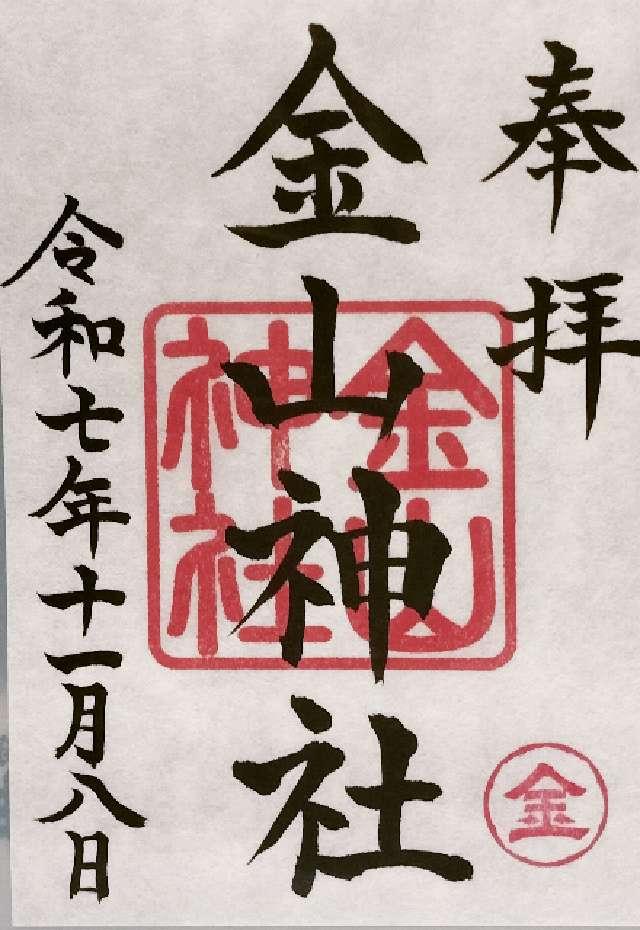 奉拝
金山神社
金山神社
金
令和七年十一月八日